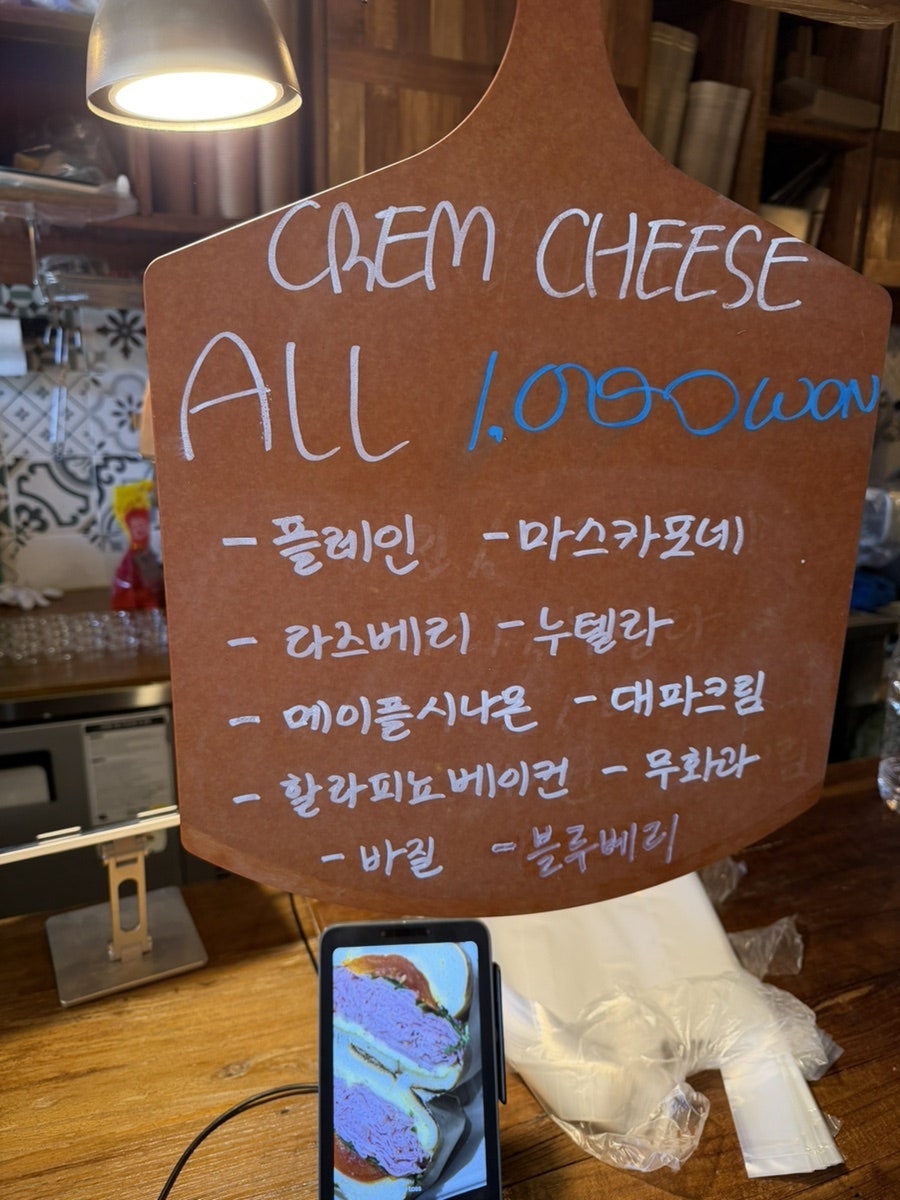 CREM CHEESE
ALL 1.000 WON
- 플레인 - 마스카포네
- 라즈베리 - 누텔라
- 메이플시나몬 - 대파크림
- 할라피뇨베이컨 - 무화과
- 바질 - 블루베리
toss